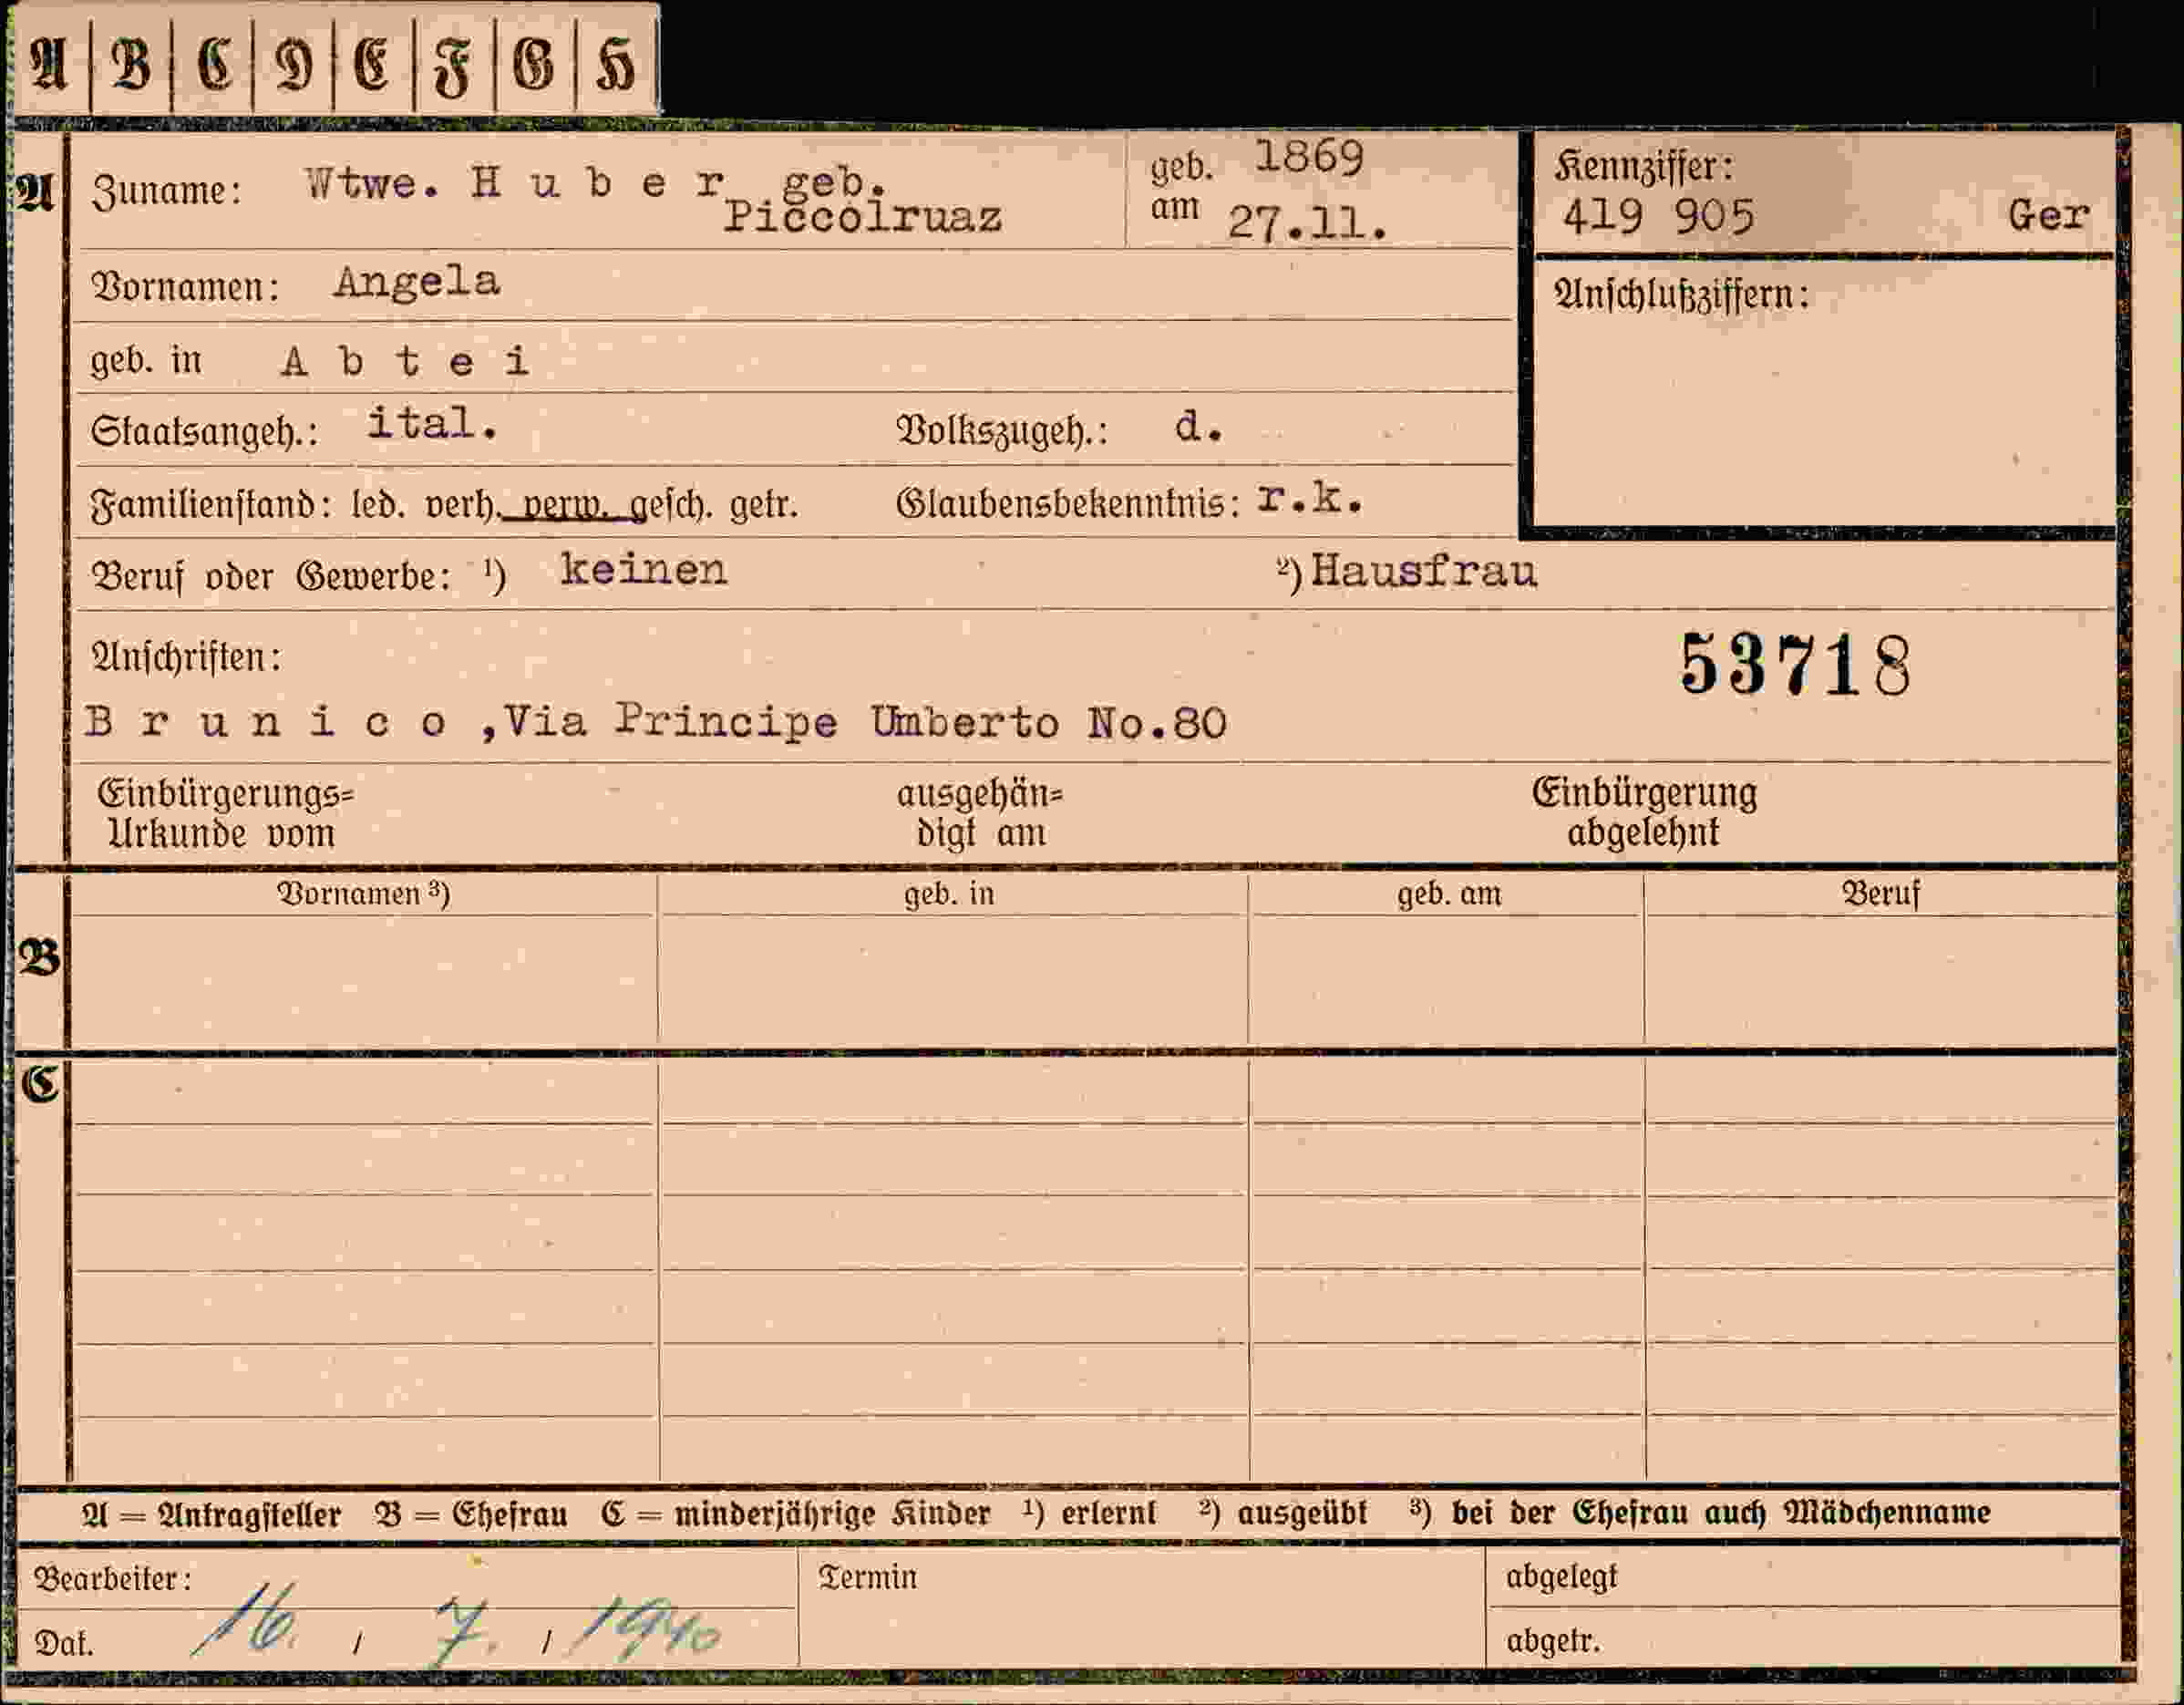 A B C D E F G H
A Zuname: Wtwe. H u b e r geb. geb. 1869 Kennziffer:
Piccolruaz am 27.11. 419 905 Ger
Vornamen: Angela Anschlußziffern:
geb. in A b t e i
Staatsangeh.: ital. Volkszugeh.: d.
Familienstand: led. verh. verw. gesch. getr. Glaubensbekenntnis: r.k.
Beruf oder Gewerbe: ¹) keinen ²) Hausfrau
Anschriften: 53718
B r u n i c o ,Via Principe Umberto No.80
Einbürgerungs= ausgehän= Einbürgerung
Urkunde vom digt am abgelehnt
Vornamen ³) geb. in geb. am Beruf
B
C
A = Antragsteller B = Ehefrau C = minderjährige Kinder ¹) erlernt ²) ausgeübt ³) bei der Ehefrau auch Mädchenname
Bearbeiter: Termin abgelegt
Dat. 16. / 7. / 1940 abgetr.